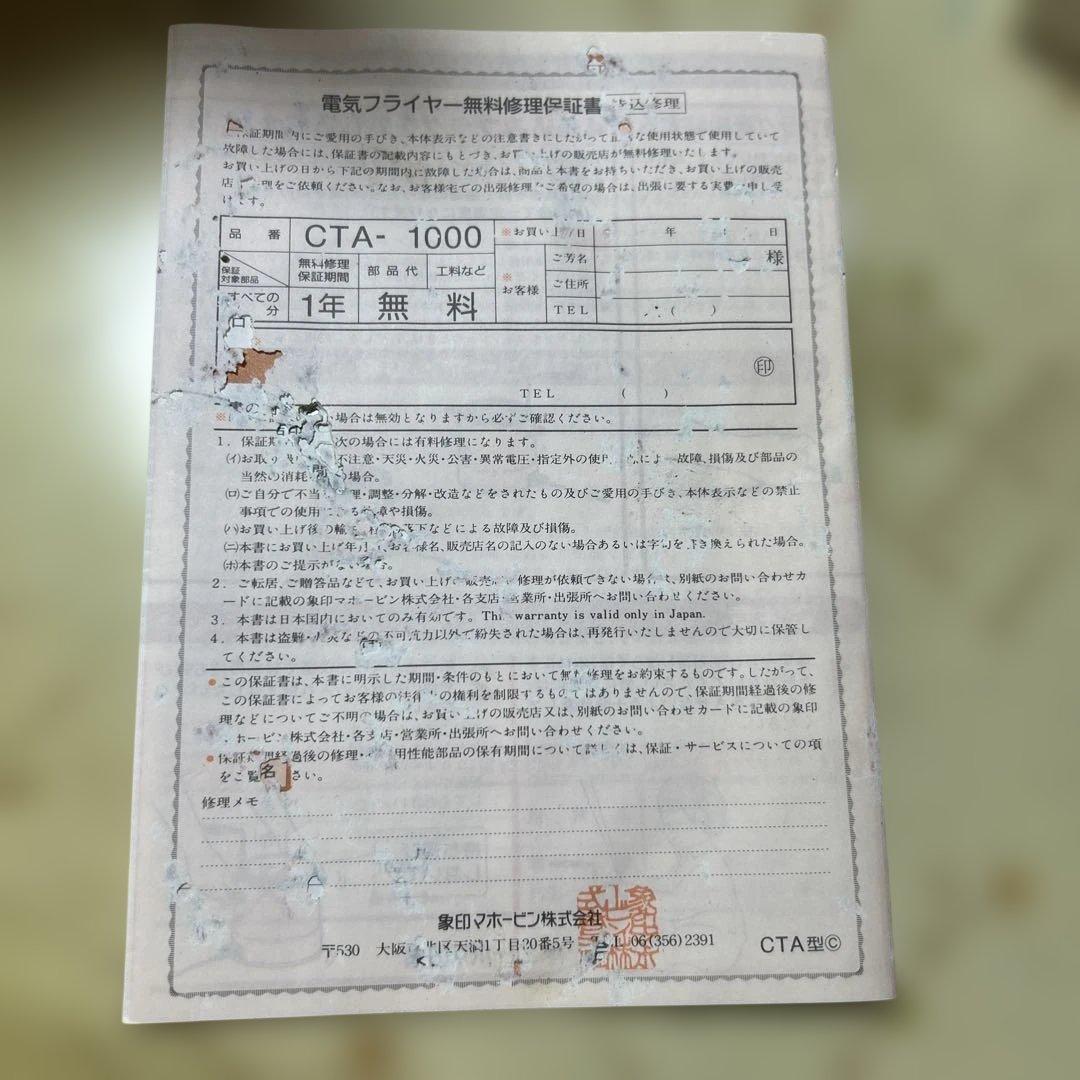 電気フライヤー無料修理保証書 込修理
保証期間内にご愛用の手びき、本体表示などの注意書きにしたがって な使用状態で使用していて
故障した場合には、保証書の記載内容にもとづき、お買い上げの販売店が無料修理いたします。
お買い上げの日から下記の期間内に故障した場合は、商品と本書をお持ちいただき、お買い上げの販売
店 理をご依頼ください。なお、お客様宅での出張修理をご希望の場合は、出張に要する実費 申し受
けます。
品番 CTA-1000 ※お買い上げ日 年 日
保証対象部品 無料修理保証期間 部品代 工料など ※お客様 ご芳名 様
ご住所
すべての 分 1年 無料 TEL ( )
印
TEL ( )
※ 場合は無効となりますから必ずご確認ください。
1. 保証期 次の場合には有料修理になります。
(イ)お取 不注意・天災・火災・公害・異常電圧・指定外の使用 によ 故障、損傷及び部品の
当然の消耗 の場合。
(ロ)ご自分で不当 理・調整・分解・改造などをされたもの及びご愛用の手びき、本体表示などの禁止
事項での使用による故障や損傷。
(ハ)お買い上げ後の輸 落下などによる故障及び損傷。
(ニ)本書にお買い上げ年月日、お客様名、販売店名の記入のない場合あるいは字句を書き換えられた場合。
(ホ)本書のご提示がない場合。
2. ご転居、ご贈答品などで、お買い上げの販売店に修理が依頼できない場合は、別紙のお問い合わせカ
ードに記載の象印マホービン株式会社・各支店・営業所・出張所へお問い合わせください。
3. 本書は日本国内においてのみ有効です。This warranty is valid only in Japan.
4. 本書は盗難・火災などの不可抗力以外で紛失された場合は、再発行いたしませんので大切に保管し
てください。
●この保証書は、本書に明示した期間・条件のもとにおいて無料修理をお約束するものです。したがって、
この保証書によってお客様の法律上の権利を制限するものではありませんので、保証期間経過後の修
理などについてご不明の場合は、お買い上げの販売店又は、別紙のお問い合わせカードに記載の象印
マホービン株式会社・各支店・営業所・出張所へお問い合わせください。
●保証期間経過後の修理・ 用性能部品の保有期間について詳しくは、保証・サービスについての項
をご覧 さい。
修理メモ
象印マホービン株式会社
〒530 大阪市北区天満1丁目20番5号 TEL 06(356)2391
CTA型Ⓒ